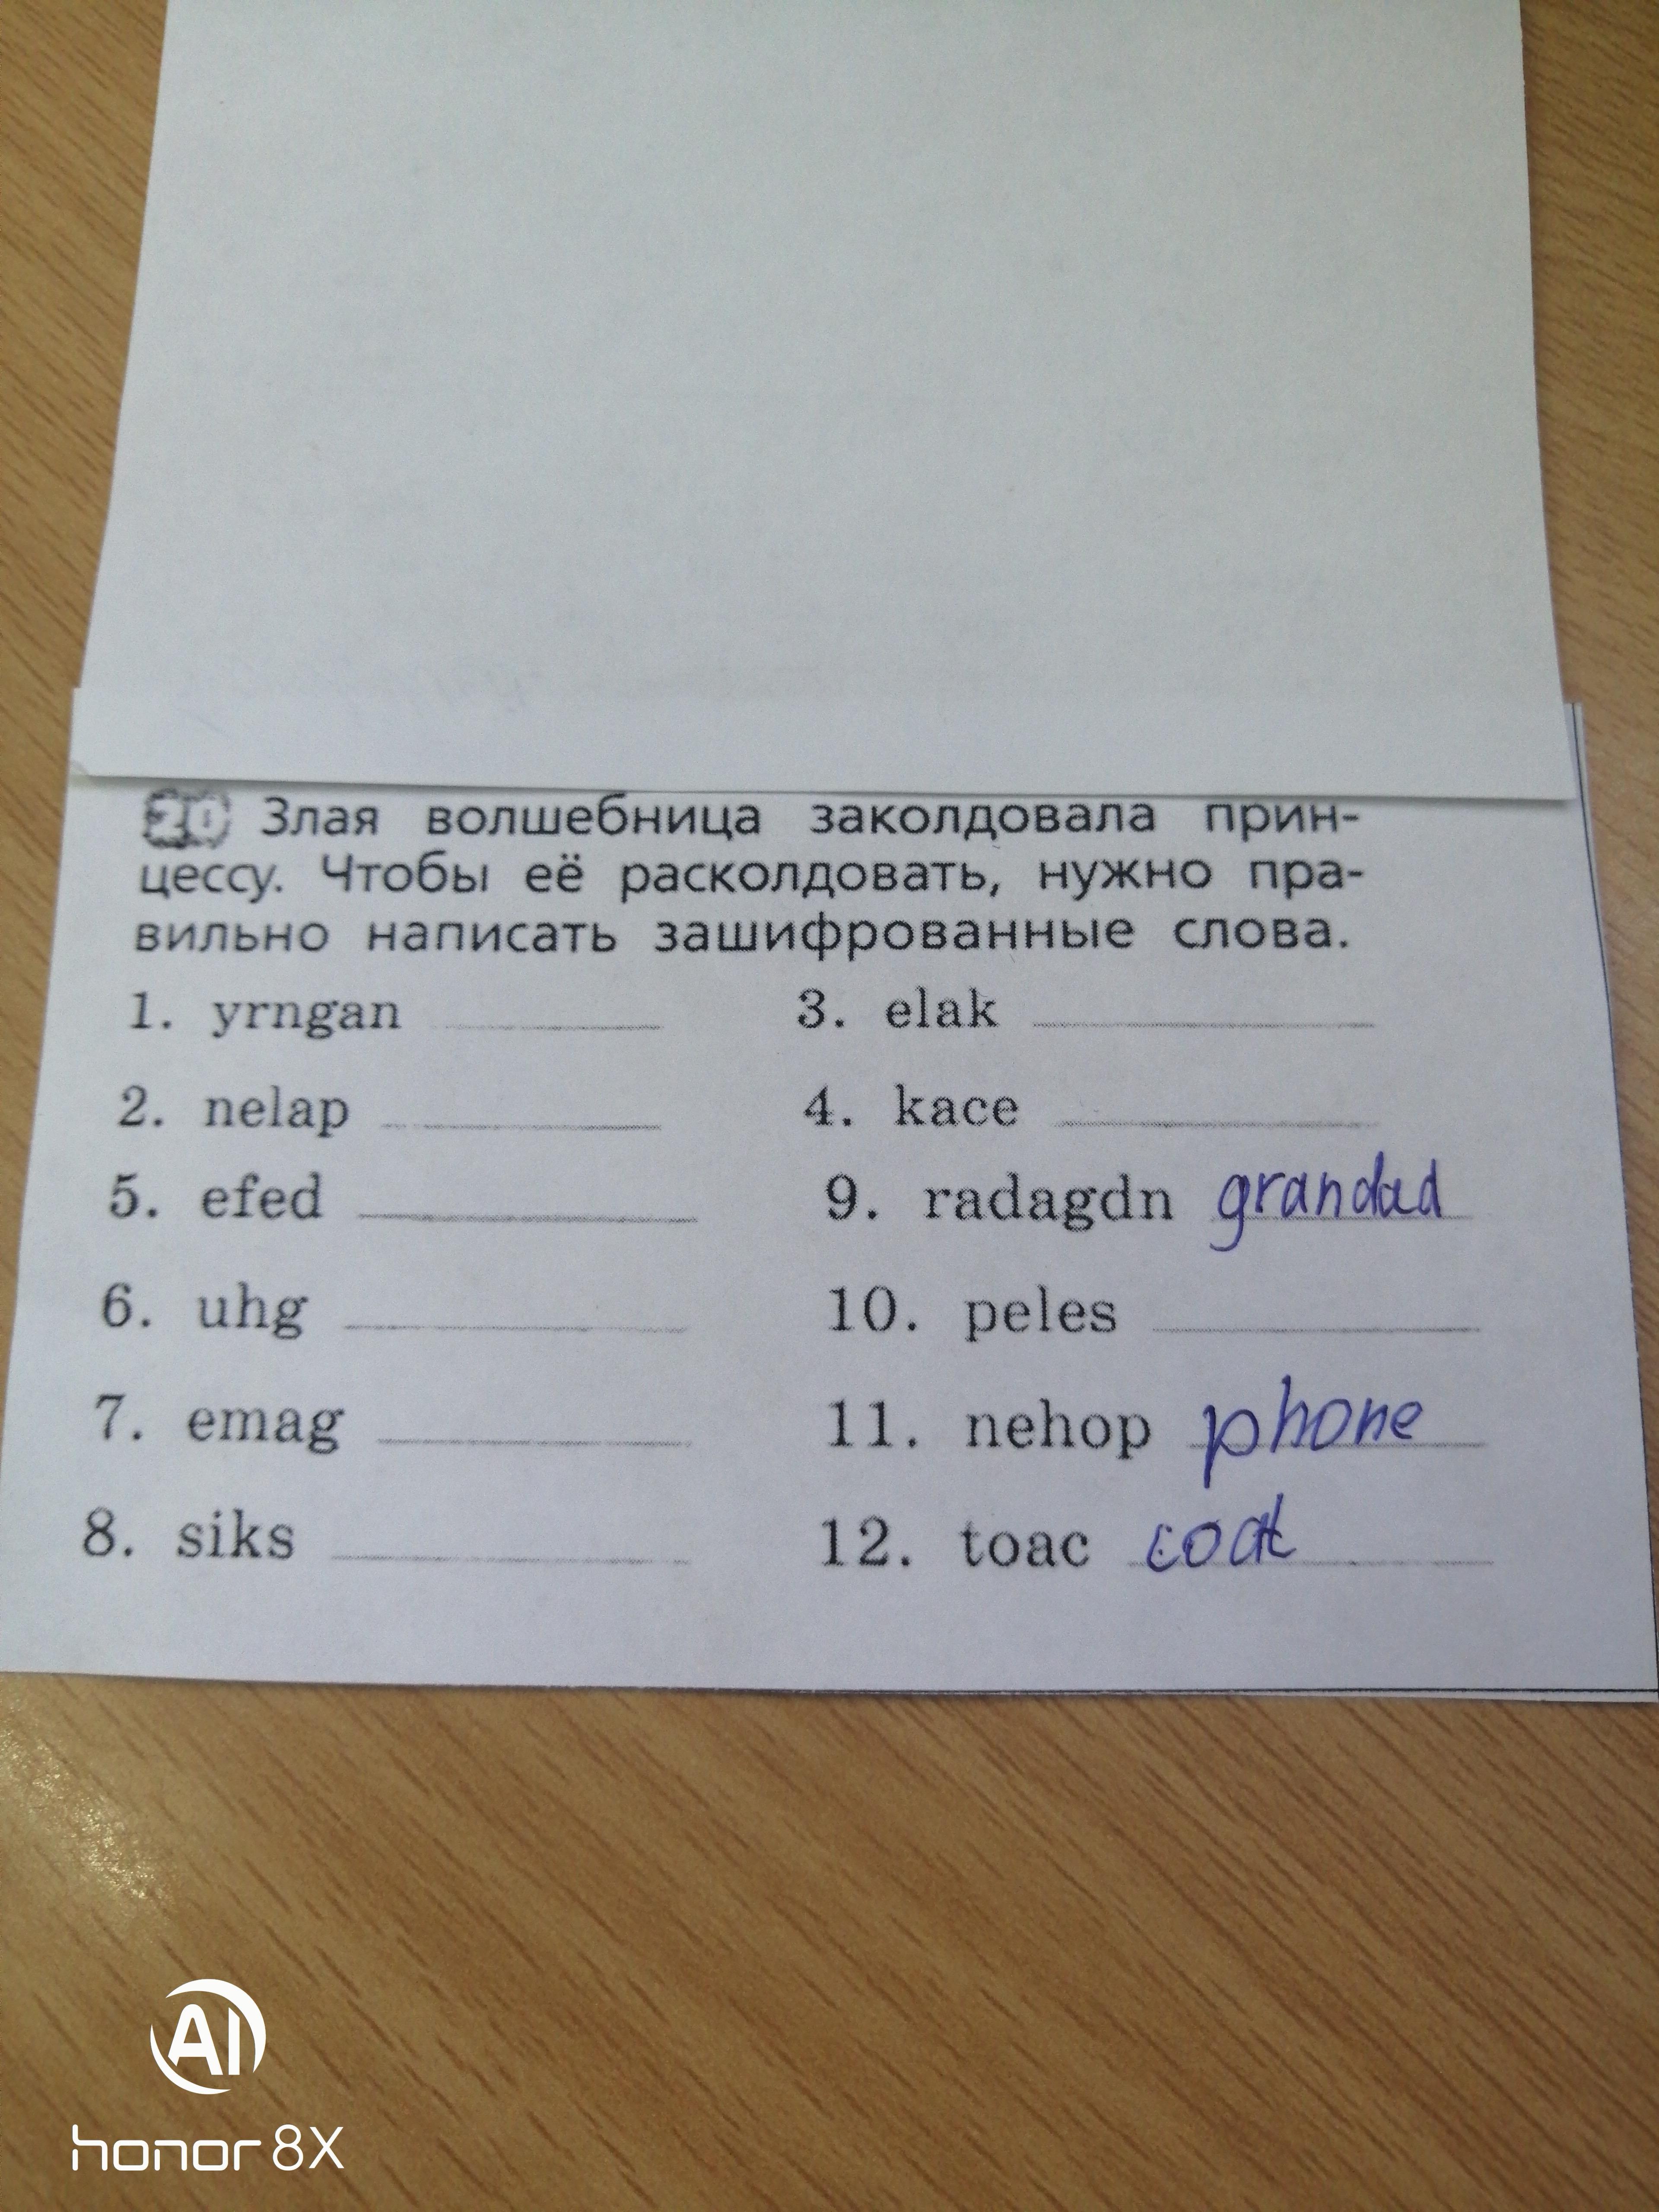 Злая волшебница заколдовала прин-
цессу. Чтобы её расколдовать, нужно пра-
вильно написать зашифрованные слова.
1. yrngan 3. elak
2. nelap 4. kace
5. efed 9. radagdn grandad
6. uhg 10. peles
7. emag 11. nehop phone
8. siks 12. toac coat
AI
honor 8X